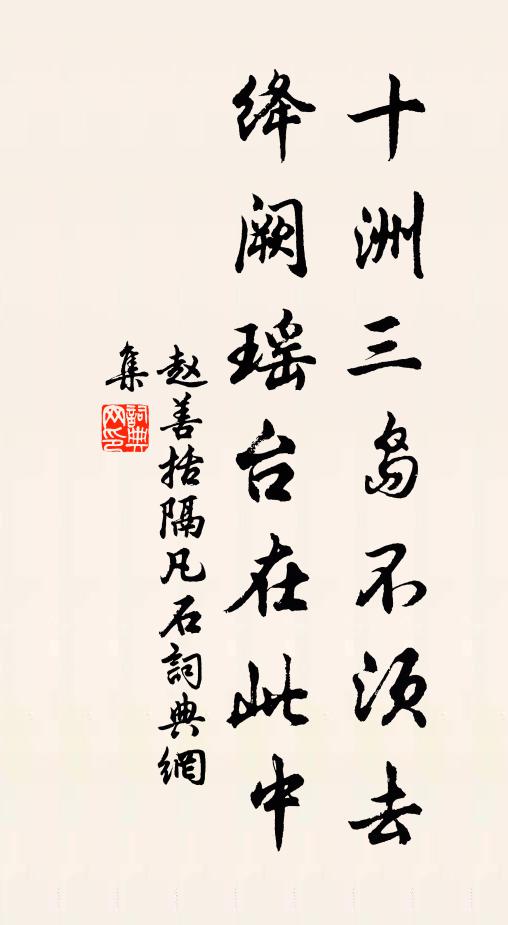 十洲三岛不须去
绛阙瑶台在此中
赵善括隔凡石詞典網
集
詞典
网印